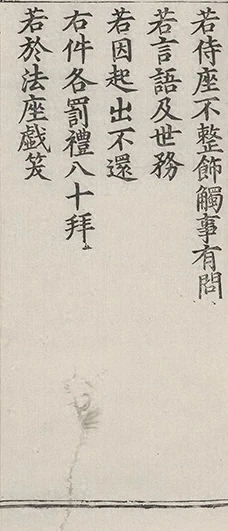 若侍座不整飾觸事有問
若言語及世務
若因起出不還
右件各罰禮八十拜
若於法座戯笑